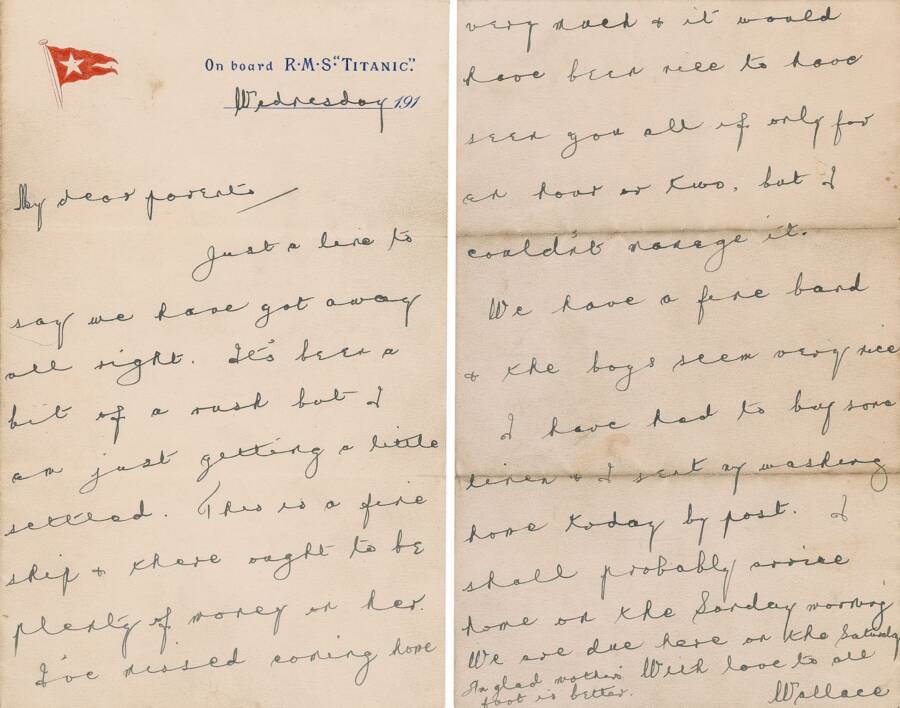 On board R·M·S. "TITANIC".
Wednesday 191
My dear parents
Just a line to
say we have got away
all right. It's been a
bit of a rush but I
am just getting a little
settled. This is a fine
ship & there ought to be
plenty of money on her.
I've missed coming home
very much & it would
have been nice to have
seen you all if only for
an hour or two, but I
couldn't manage it.
We have a fine band
& the boys seem very nice
I have had to buy some
linen & I sent my washing
home today by post. I
shall probably arrive
home on the Sunday morning
We are due here on the Saturday
I'm glad mother's
foot is better. With love to all
Wallace